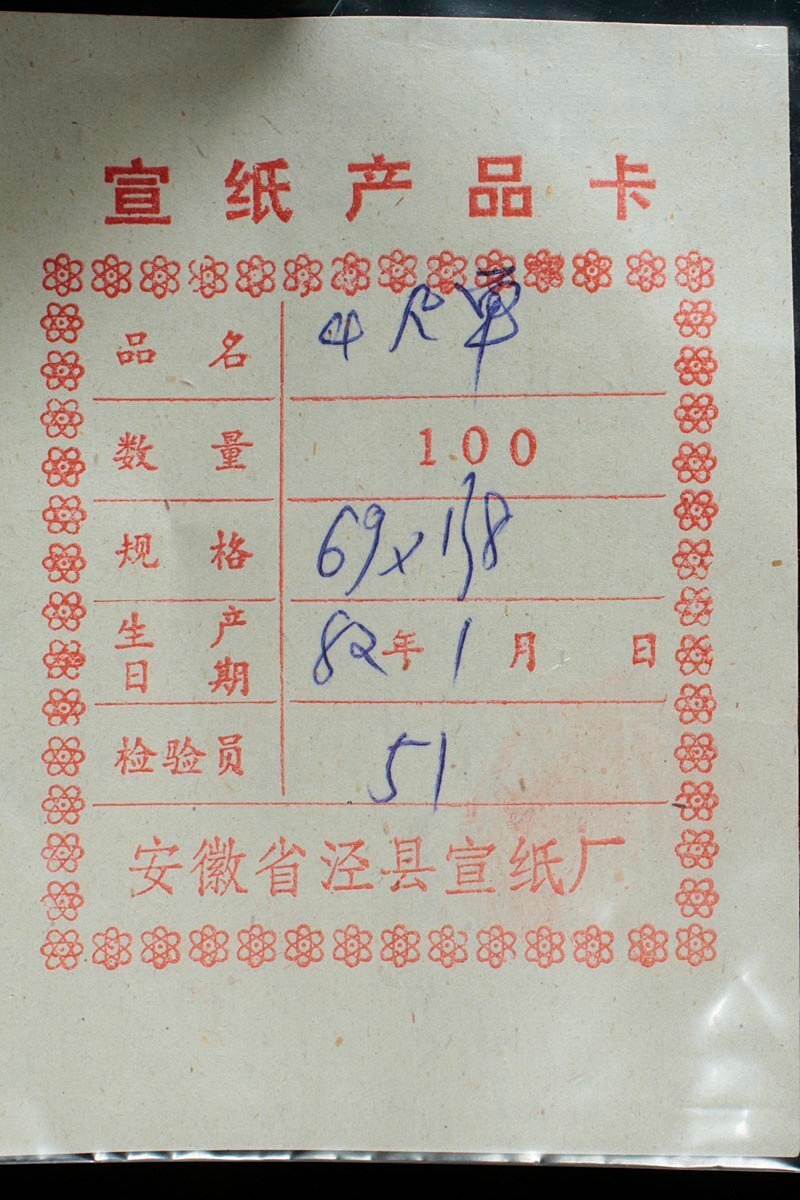 宣纸产品卡
品名 4尺单
数量 100
规格 69×138
生产日期 82年1月 日
检验员 51
安徽省泾县宣纸厂